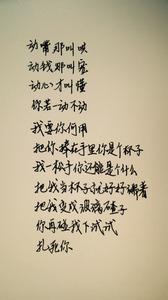 动嘴那叫哄
动钱那叫宠
动心才叫懂
你若一动不动
我要你何用
把你捧在手里你是个杯子
我一松手你还能是个什么
把我当杯子就好好端着
把我变成玻璃碴子
你再碰我下试试
扎死你